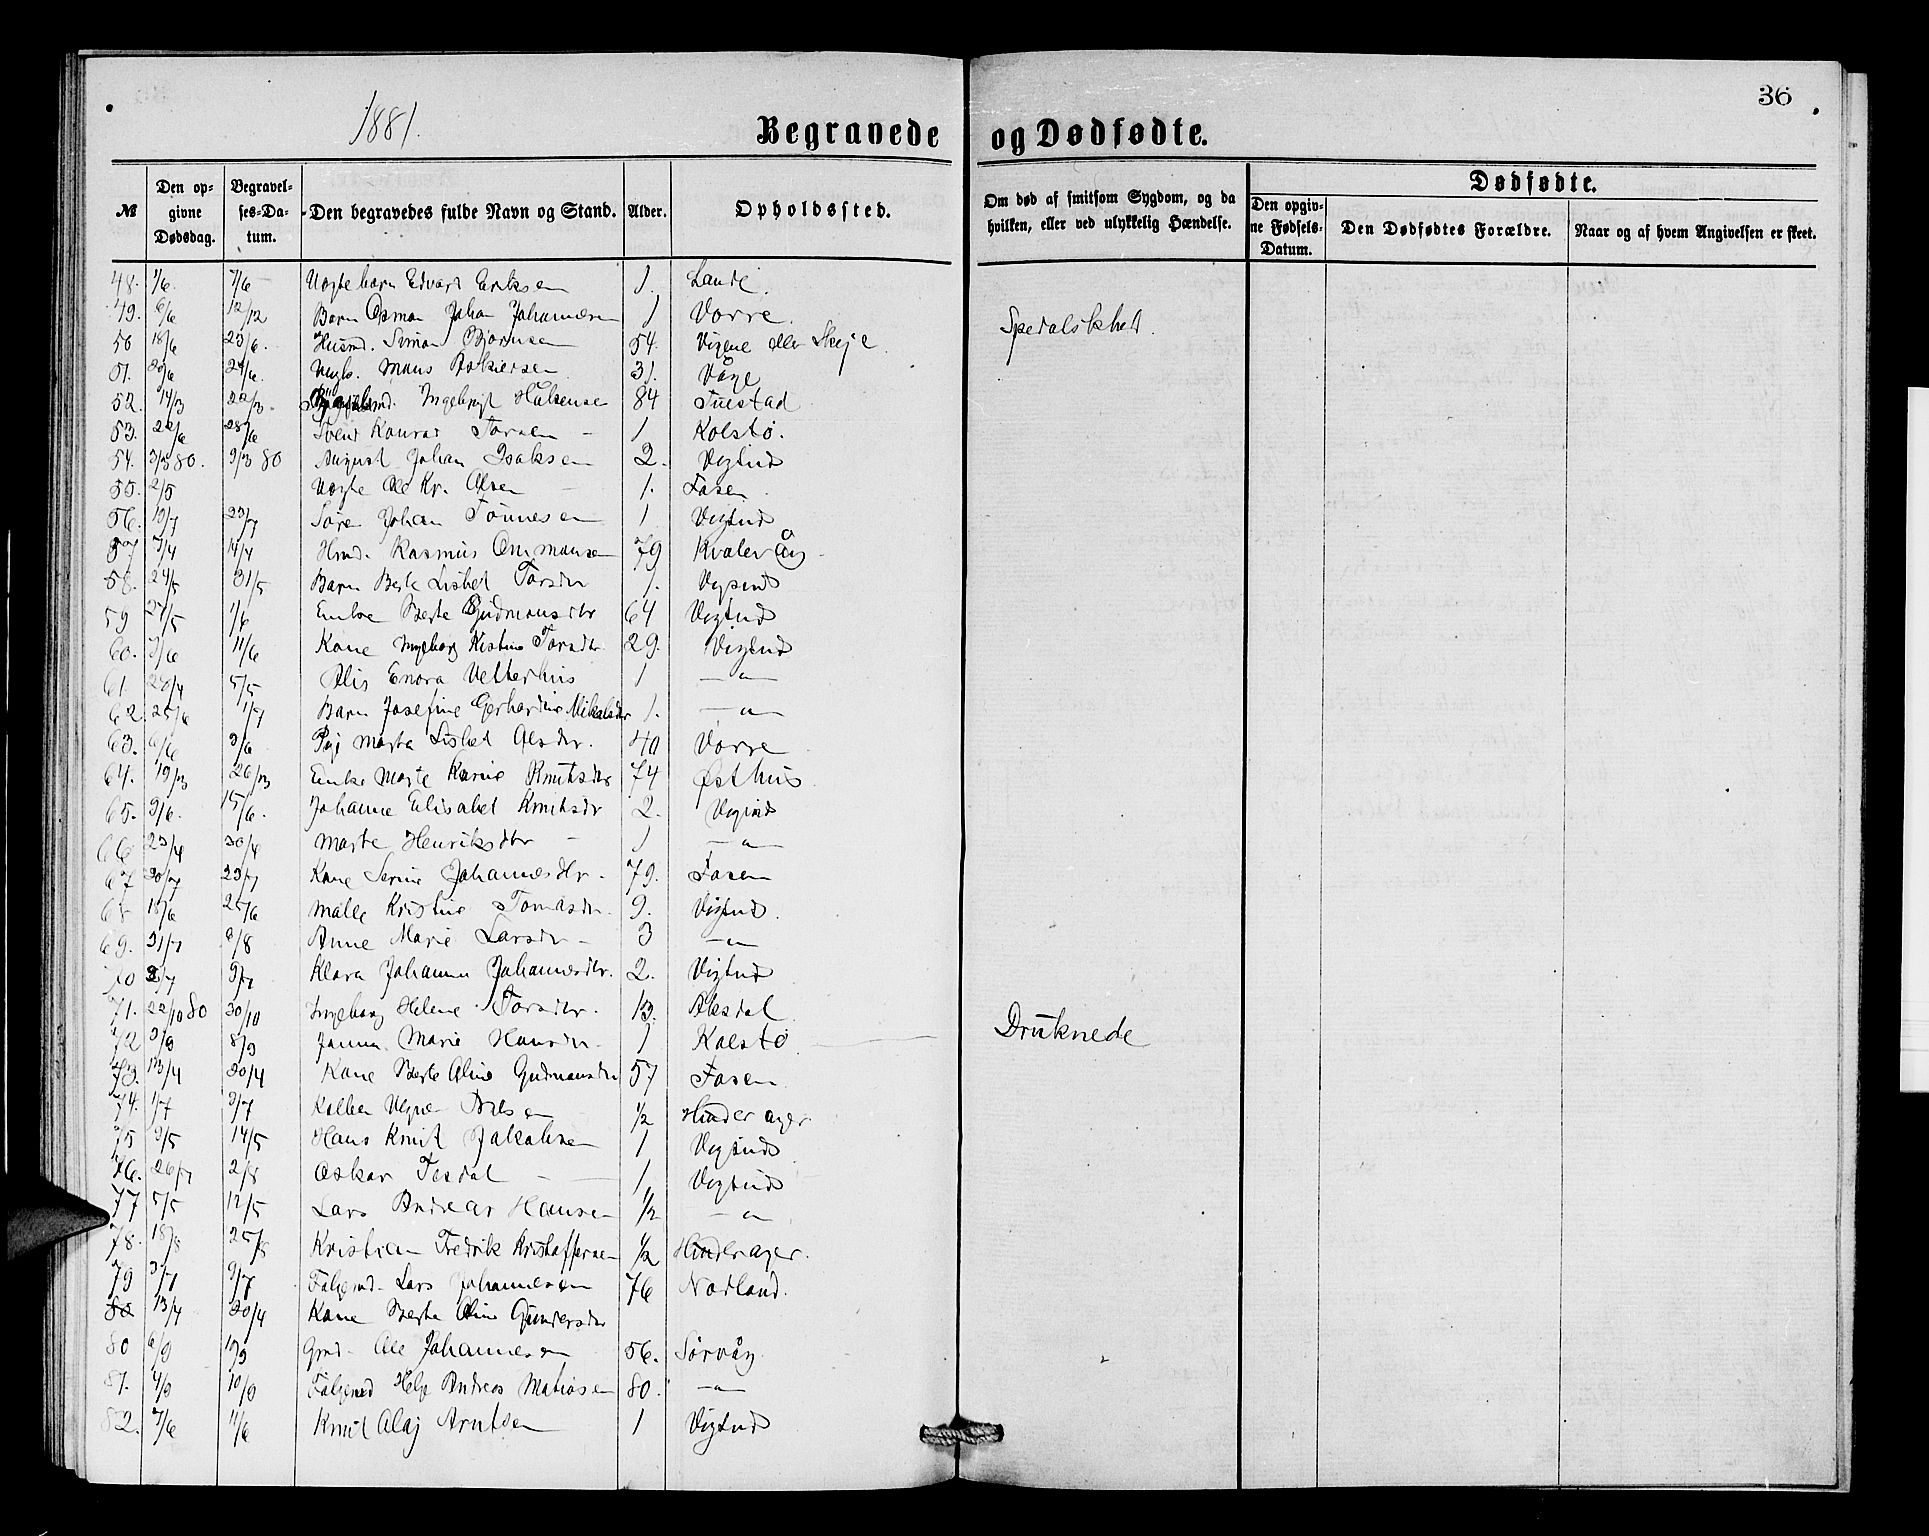 36
1881.
Begravede og Dødfødte.
№
Den opgivne Dødsdag.
Begravelses-Datum.
Den begravedes fulde Navn og Stand.
Alder.
Opholdssted.
Om død af smitsom Sygdom, og da hvilken, eller ved ulykkelig Hændelse.
Dødfødte.
Den opgivne Fødsels-Datum.
Den Dødfødtes Forældre.
Naar og af hvem Angivelsen er skeet.
48. 1/6. 7/6 Edvard Eriksen 1.
49. 6/6 12/12 Barn Osman Johan Johannesen 1 Vorre.
50 18/6 23/6. Husmd. Simon Bjørnsen 54. Vigene eller Skeje Spedalskhed.
51. 20/6 Mons 31. Våge
52. 14/3 22/3. Ingebrigt 84 Tuestad
53. 22/6 28/6 Svend Konrad Torsen – 1 Kolstø.
54. 3/3 80. 9/3 80 August Johan Isaksen 2. Vigtnd
55. 2/5 Ole Kr. Olsen 1. Fosen
56. 19/7 23/7 Søren Johan Tønnesen 1 Vigtnd
57 14/4 Hmd. Rasmus Ommansen 79 Kvalevåg
58. 24/5 31/5 Barn Berte Lisbet Torsdtr 1.
59 27/5 1/6 Enke Berte Gudmansdtr 64 Vigtnd
60. 3/6 11/6 Kone Ingeborg Kistine Torsdtr 29. Vigtnd
61. 5/5 Enora Vetterhus 1 – " –
62. 25/6 1/7 Barn Josefine Gerhardine Mikalsdtr 1. – " –
63. 6/6 Pige Marta Lisbet Olsdtr. 40 Vorre
64. 19/3 26/3 Enke Marte Karine Knutsdtr 74 Østhus
65. 9/6. 15/6. Johanne Elisabet Knutsdtr 2.
66 23/4 30/4 Marte Henriksdtr – 1 – " –
67 23/7 Kone Serine Johannesdtr. 79. Fosen
68 18/6 25/6 Malle Kristine Tomasdtr. 9. Vigtnd.
69. 31/7 6/8 Anne Marie Larsdtr – 3 – " –
70 9/7 Klara Johanna Johannesdtr. 2. Vigtnd
71. 22/10 80 30/10 Ingeborg Helene Torsdtr. 13. Aksdal. Druknede
72 8/9 Janna Marie Hansdtr. 1 Kolstø
73. 13/4 20/4 Kone Berte Oline Gudmansdtr 57 Fosen.
74. 1/7 9/7 1/2 Hinderager
75 9/5 14/5 Hans Knut Jakobsen 1 Vigtnd
76. 26/7 2/8 Oskar Tesdal 1. Vigtnd
77 5/5 12/5 Lars Andreas Hansen 1/2 – " –
78. 18/8 25/8 Kristian Fredrik Kristoffersen 1/2 Hinderager.
79 3/7 9/7 Følgemd. Lars Johannesen 76 Nodland.
80 13/4 20/4 Kone Berte Oline Gunersdtr
80 6/9 Gmd. Ole Johannesen 56. Sørvåg
81. 4/9 10/9 Følgemd Helge Andreas Matiasen 80. – " –
82. 7/6 11/6 Knut Olaj Arntsen 1 Vigtnd